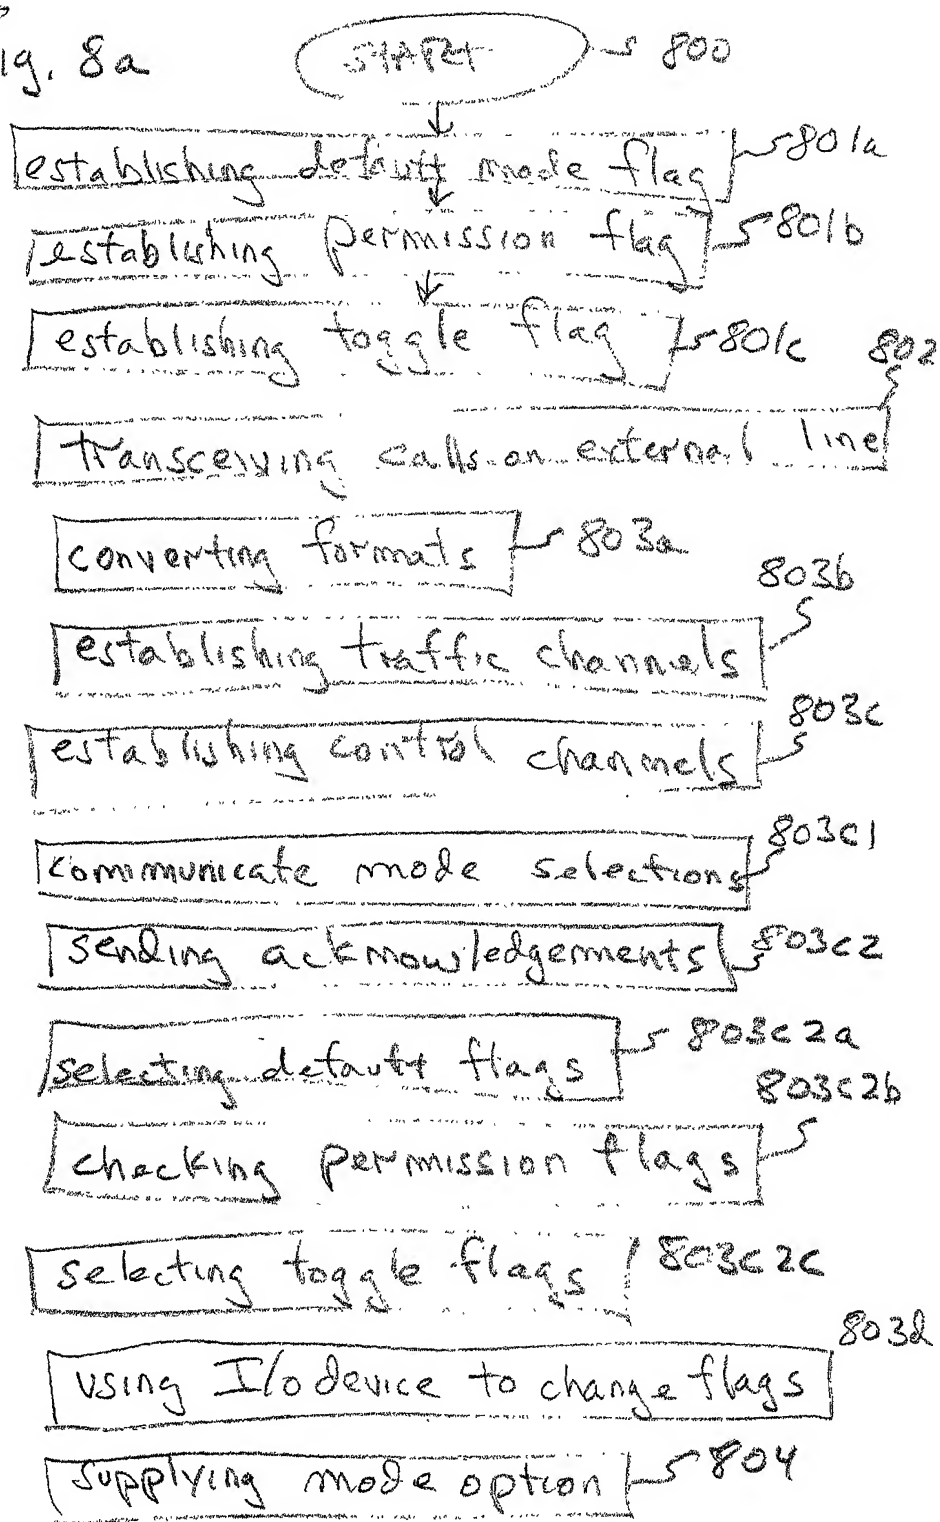 ig. 8a
START 800
establishing default mode flag 801a
establishing permission flag 801b
establishing toggle flag 801c
802
transceiving calls on external line
converting formats 803a
803b
establishing traffic channels
803c
establishing control channels
803c1
communicate mode selections
sending acknowledgements 803c2
803c2a
selecting default flags
803c2b
checking permission flags
selecting toggle flags 803c2c
803d
using I/o device to change flags
supplying mode option 804